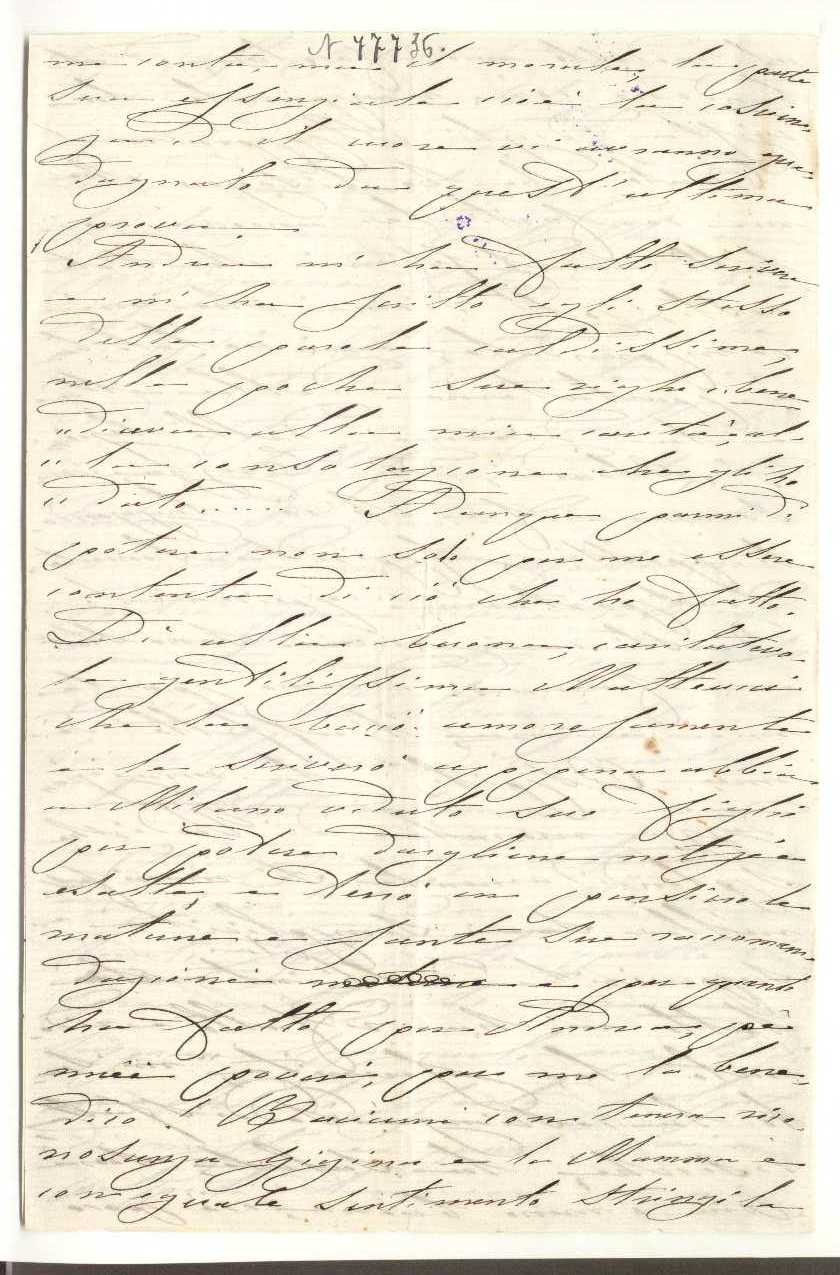 N 77736.
me conta, ma il morale, la parte
sua essenziale cioè la coscien-
za, ed il cuore vi avranno gua-
dagnato da quest'ultima
prova.
Andrea mi ha fatto scrivere
e mi ha scritto egli stesso
delle parole caldissime,
nelle poche sue righe: bene
"diceva alla mia carità, al-
"la consolazione che gli ho
"dato..... Dunque parmi di
potere non solo per me essere
contenta di ciò che ho fatto.
Di' alla buona, caritatevo-
le gentilissima Matteucci
che la bacio amorosamente
e le scriverò appena abbia
a Milano veduto suo figlio
per potere dargliene notizie
esatte, e terrò in pensiero le
mature e sante sue raccoman-
dazioni e per quanto
ha fatto per Andrea, pei
miei poveri, per me la bene-
dico! Baciami con tenera rico-
noscenza Gigina e la Mamma e
con eguale sentimento stringi la